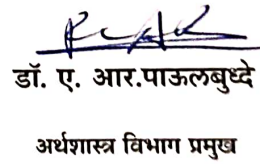 डॉ. ए. आर.पाऊलबुध्दे
अर्थशास्त्र विभाग प्रमुख